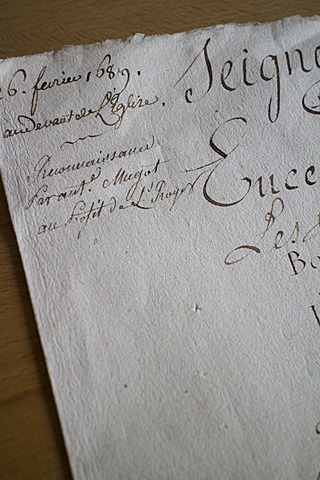 26. fevrie 1689.
au devant de L'Eglise.
Reconnaissance
Par ant.e Mugot
au Profit de L. Royer
Seigne
Ence
Les
Bo